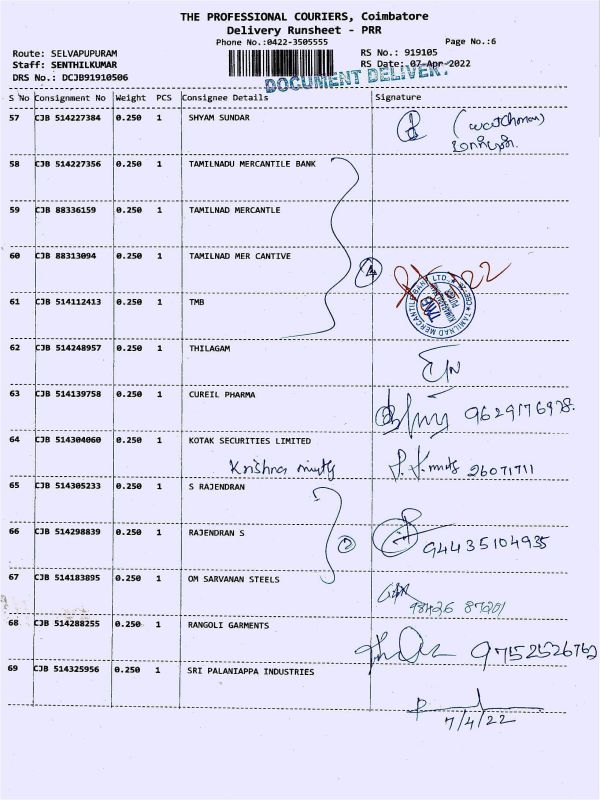 THE PROFESSIONAL COURIERS, Coimbatore
Delivery Runsheet - PRR
Phone No.:0422-3505555
Page No.:6
Route: SELVAPUPURAM
RS No.: 919105
Staff: SENTHILKUMAR
RS Date: 07-Apr-2022
DRS No.: DCJB91910506
DOCUMENT DELIVERY
S No Consignment No Weight PCS Consignee Details Signature
57 CJB 514227384 0.250 1 SHYAM SUNDAR (watchman)
58 CJB 514227356 0.250 1 TAMILNADU MERCANTILE BANK
59 CJB 88336159 0.250 1 TAMILNAD MERCANTLE
60 CJB 88313094 0.250 1 TAMILNAD MER CANTIVE 4 22
TAMILNAD MERCANTILE BANK LTD.
TMB
61 CJB 514112413 0.250 1 TMB
62 CJB 514248957 0.250 1 THILAGAM
63 CJB 514139758 0.250 1 CUREIL PHARMA 9629176978.
64 CJB 514304060 0.250 1 KOTAK SECURITIES LIMITED
Krishna 26071711
65 CJB 514305233 0.250 1 S RAJENDRAN
66 CJB 514298839 0.250 1 RAJENDRAN S 2 94435104935
67 CJB 514183895 0.250 1 OM SARVANAN STEELS
98426 87201
68 CJB 514288255 0.250 1 RANGOLI GARMENTS 9752526762
69 CJB 514325956 0.250 1 SRI PALANIAPPA INDUSTRIES
7/4/22